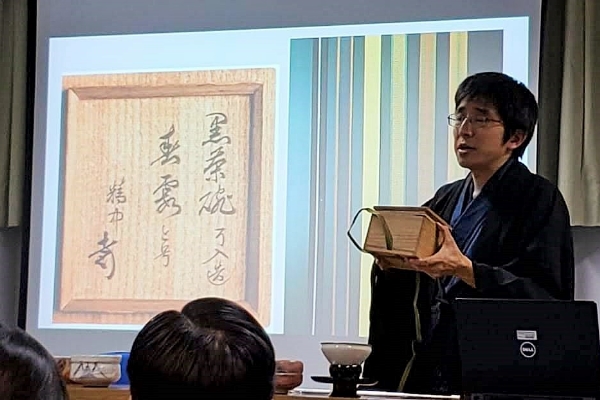 黒茶碗 了入造
春霞と号
精中
DELL